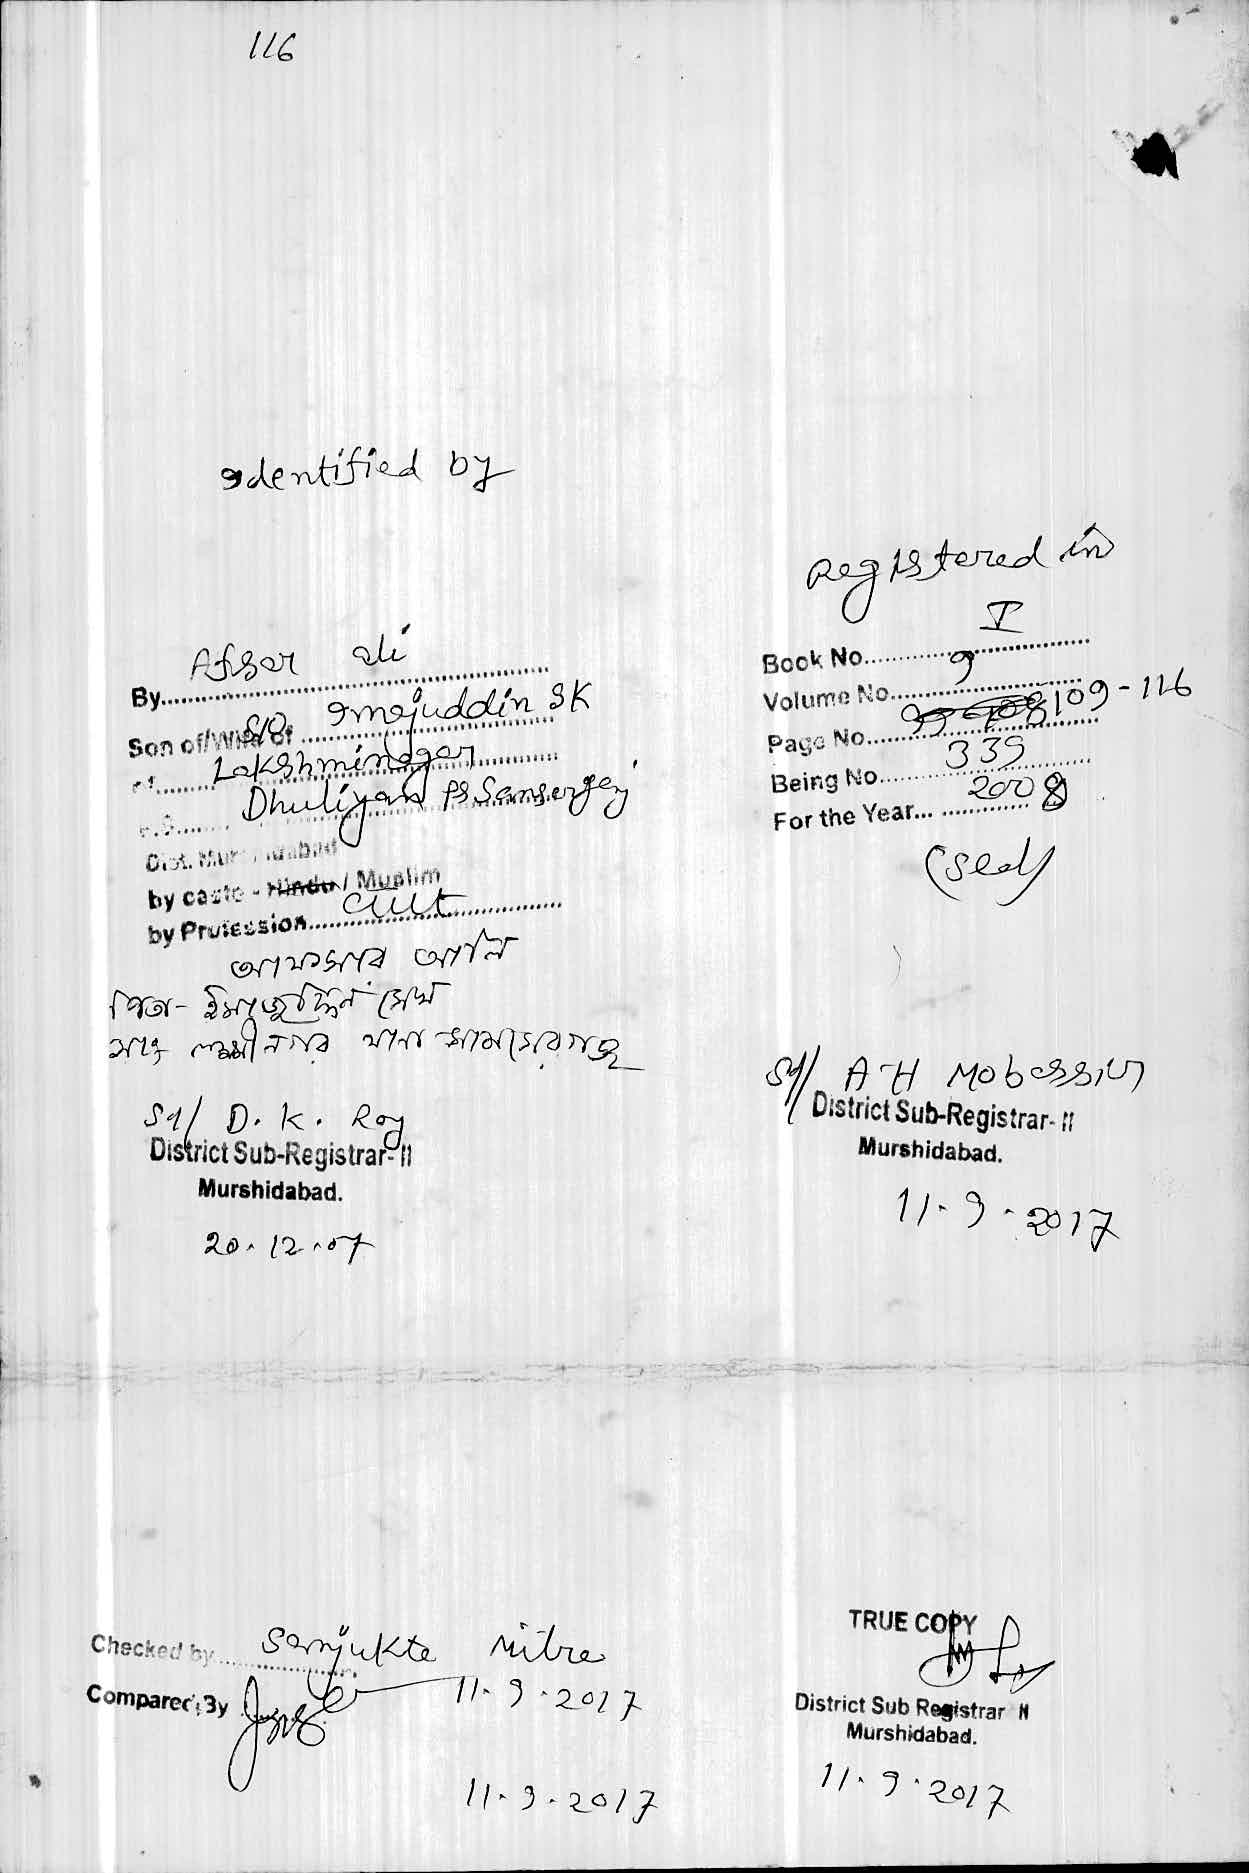 116
Identified by
By.......Afsar ali
Son of/Wife of S/O. Imajuddin SK
of.......Lakshminagar
P.S.......Dhuliyan PS Samserganj
Dist. Murshidabad
by caste - Hindu / Muslim
by Profession.......Cult
আফসার আলি
পিতা - ইমাজুদ্দিন সেখ
সাং লক্ষ্মীনগর থানা সামসেরগঞ্জ
Sd/ D. K. Roy
District Sub-Registrar- II
Murshidabad.
20.12.07
Registered in
Book No.......I
Volume No.......9
Page No.......109-116
Being No.......339
For the Year.......2008
(Sed)
Sd/ A H Mobassir
District Sub-Registrar- II
Murshidabad.
11.9.2017
Checked by.......Sanjukta Mitra
11.9.2017
Compared By
11.9.2017
TRUE COPY
District Sub Registrar II
Murshidabad.
11.9.2017